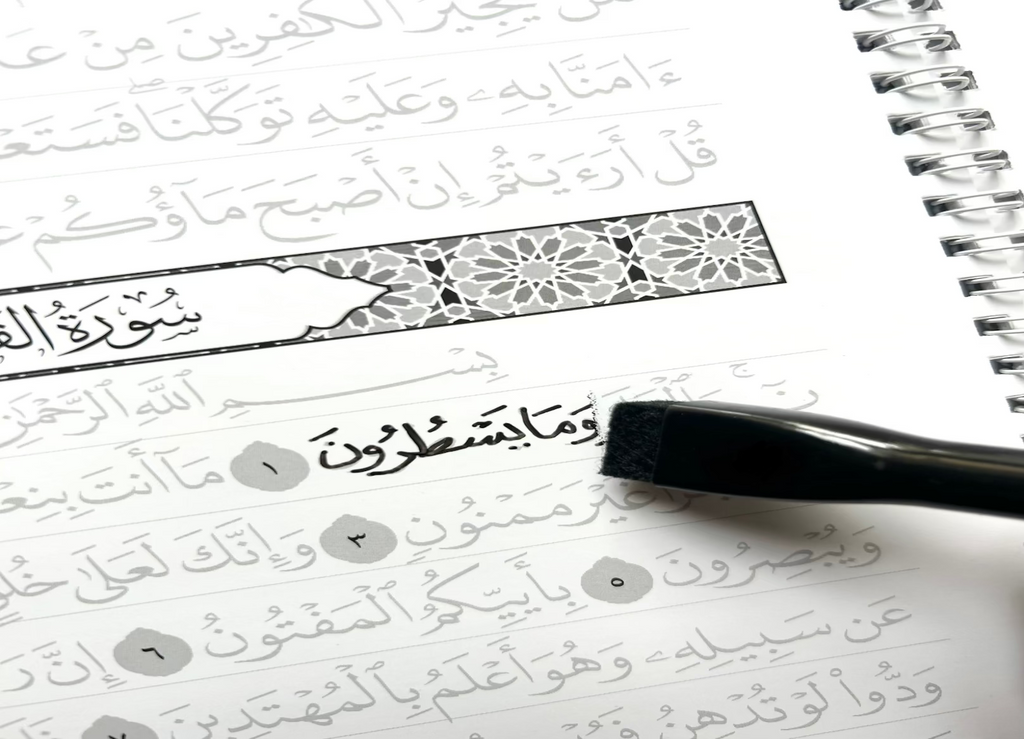 يُجِيرُ الْكَٰفِرِينَ مِنْ
ءَامَنَّا بِهِۦ وَعَلَيْهِ تَوَكَّلْنَا ۖ فَسَتَعْ
قُلْ أَرَءَيْتُمْ إِنْ أَصْبَحَ مَآؤُكُمْ
سُورَةُ
بِسْمِ ٱللَّهِ ٱلرَّحْمَٰنِ
نٓ وَمَا يَسْطُرُونَ ١ مَآ أَنتَ بِنِعْ
غَيْرَ مَمْنُونٍ ٣ وَإِنَّكَ لَعَلَىٰ
وَيُبْصِرُونَ ٥ بِأَييِّكُمُ ٱلْمَفْتُونُ ٦ إِنَّ
عَن سَبِيلِهِۦ وَهُوَ أَعْلَمُ بِٱلْمُهْتَدِينَ ٧
وَدُّوا۟ لَوْ تُدْهِنُ